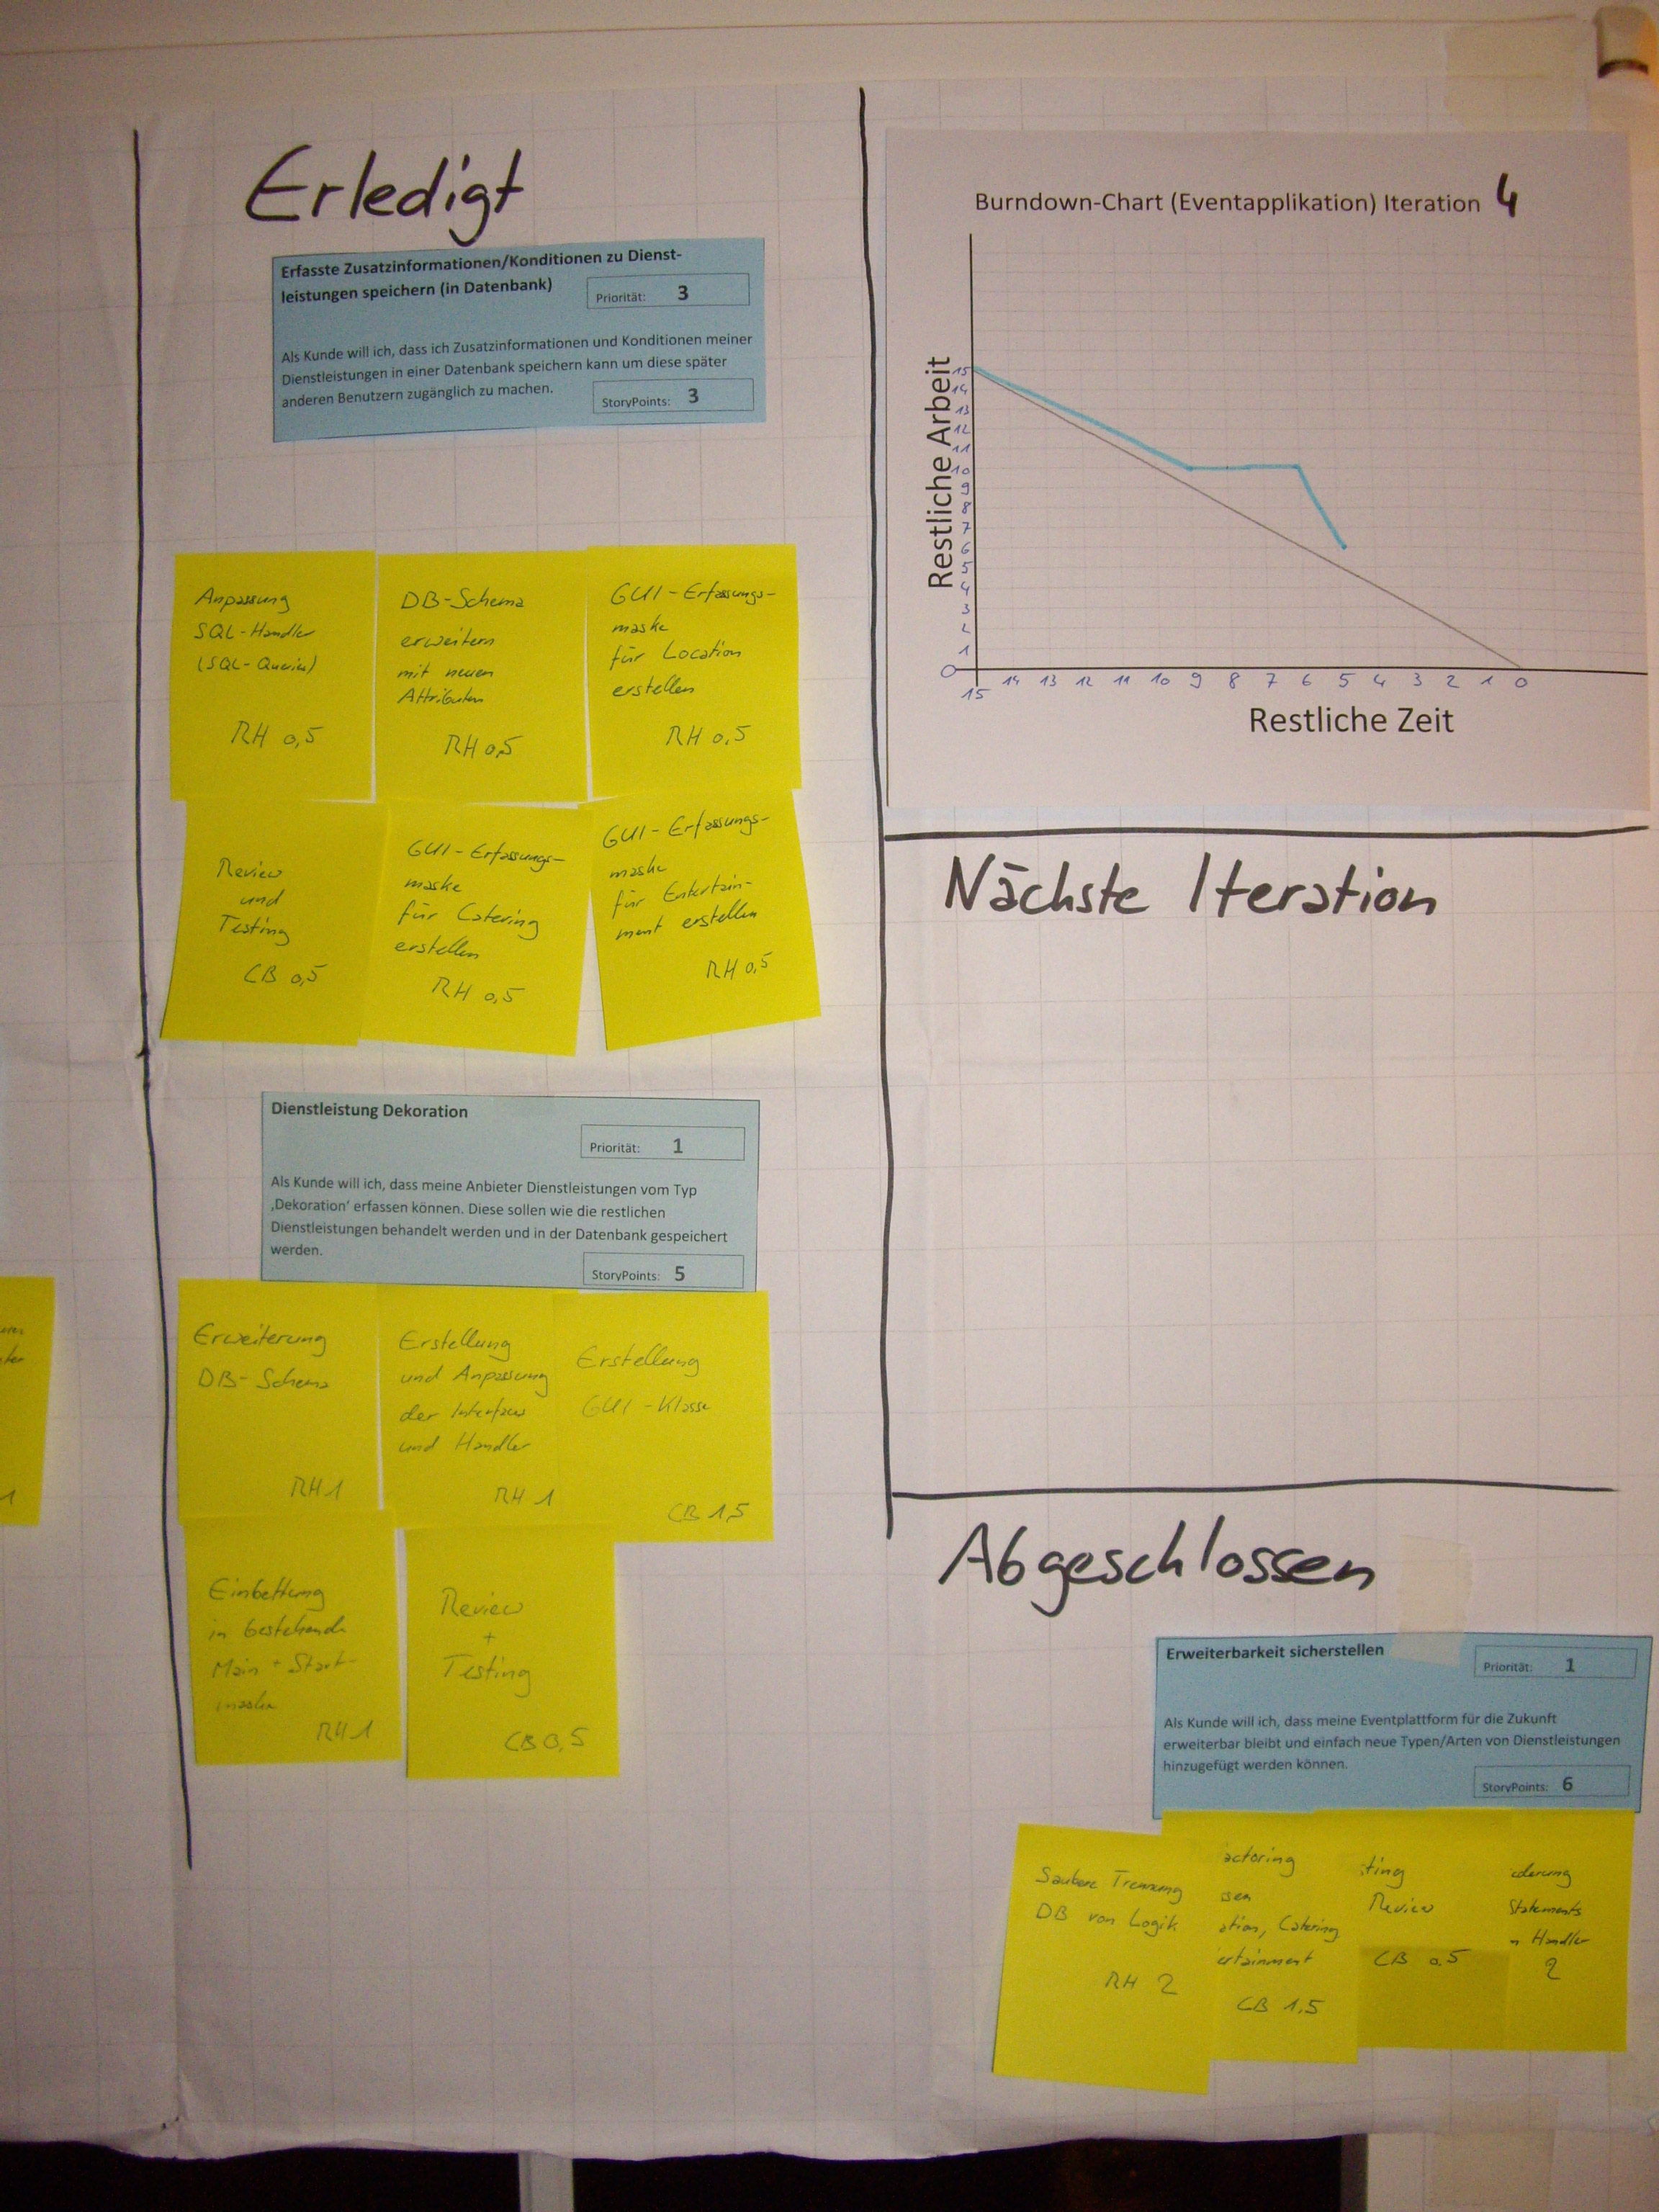 Erledigt
Erfasste Zusatzinformationen/Konditionen zu Dienst-
leistungen speichern (in Datenbank)
Priorität: 3
Als Kunde will ich, dass ich Zusatzinformationen und Konditionen meiner
Dienstleistungen in einer Datenbank speichern kann um diese später
anderen Benutzern zugänglich zu machen.
StoryPoints: 3
Anpassung
SQL-Handler
(SQL-Queries)
RH 0,5
DB-Schema
erweitern
mit neuen
Attributen
RH 0,5
GUI-Erfassungs-
maske
für Location
erstellen
RH 0,5
Review
und
Testing
CB 0,5
GUI-Erfassungs-
maske
für Catering
erstellen
RH 0,5
GUI-Erfassungs-
maske
für Entertain-
ment erstellen
RH 0,5
Dienstleistung Dekoration
Priorität: 1
Als Kunde will ich, dass meine Anbieter Dienstleistungen vom Typ
‚Dekoration‘ erfassen können. Diese sollen wie die restlichen
Dienstleistungen behandelt werden und in der Datenbank gespeichert
werden.
StoryPoints: 5
Erweiterung
DB-Schema
RH 1
Erstellung
und Anpassung
der Interfaces
und Handler
RH 1
Erstellung
GUI-Klasse
CB 1,5
Einbettung
in bestehende
Main + Start-
maske
RH 1
Review
+
Testing
CB 0,5
Burndown-Chart (Eventapplikation) Iteration 4
Restliche Arbeit
15
14
13
12
11
10
9
8
7
6
5
4
3
2
1
0
15 14 13 12 11 10 9 8 7 6 5 4 3 2 1 0
Restliche Zeit
Nächste Iteration
Abgeschlossen
Erweiterbarkeit sicherstellen
Priorität: 1
Als Kunde will ich, dass meine Eventplattform für die Zukunft
erweiterbar bleibt und einfach neue Typen/Arten von Dienstleistungen
hinzugefügt werden können.
StoryPoints: 6
Saubere Trennung
DB von Logik
RH 2
actoring
sen
ation, Catering
ertainment
CB 1,5
ting
Review
CB 0,5
derung
Statements
n Handler
2